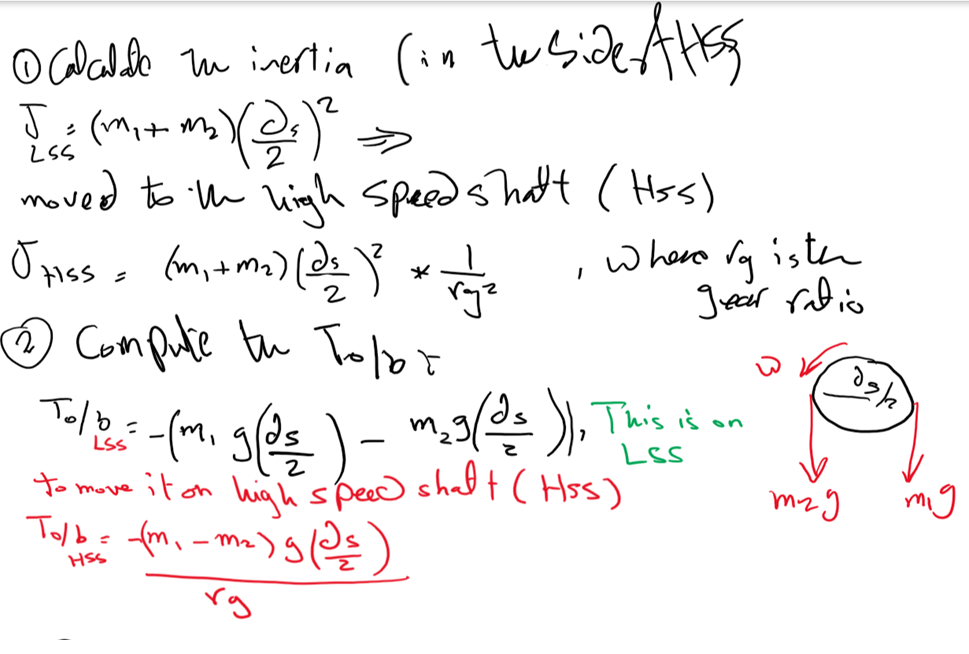 ① Calculate the inertia (in the side of HSS
J_LSS = (m₁ + m₂)(ds/2)² ⇒
moved to the high speed shaft (HSS)
J_HSS = (m₁ + m₂)(ds/2)² * 1/rg² , where rg is the
gear ratio
② Compute the To/b :
To/b_LSS = -(m₁ g(ds/2) - m₂g(ds/2)), This is on
LSS
to move it on high speed shaft (HSS)
To/b_HSS = -(m₁ - m₂) g(ds/2) / rg
ω
ds/2
m₂g
m₁g